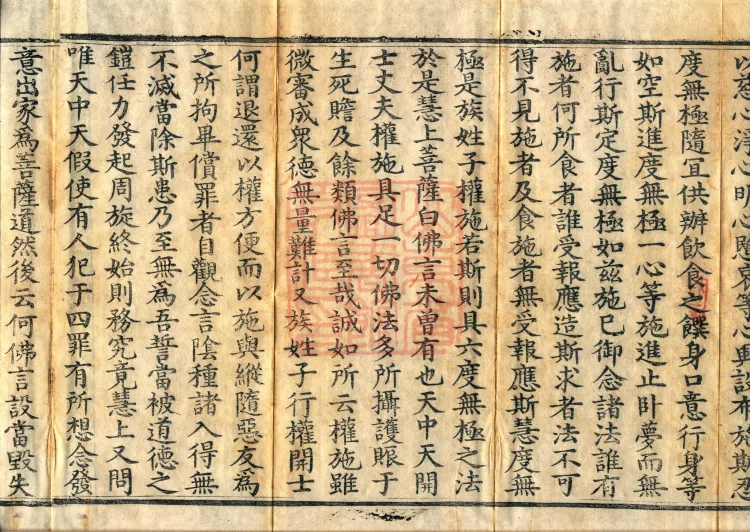 以慈心淨心明心愍哀等心與設布施斯忍
度無極隨宜供辦飲食之饌身口意行身等
如空斯進度無極一心等施進止卧夢而無
亂行斯定度無極如兹施已御念諸法誰有
施者何所食者誰受報應造斯求者法不可
得不見施者及食施者無受報應斯慧度無
極是族姓子權施若斯則具六度無極之法
於是慧上菩薩白佛言未曾有也天中天開
士丈夫權施具足一切佛法多所攝護賑于
生死贍及餘類佛言至哉誠如所云權施雖
微審成衆德無量難計又族姓子行權開士
何謂退還以權方便而以施與縱隨惡友爲
之所拘畢償罪者自觀念言陰種諸入得無
不滅當除斯患乃至無爲吾誓當被道德之
鎧任力發起周旋終始則務究竟慧上又問
唯天中天假使有人犯于四罪有所想念發
意出家爲菩薩道然後云何佛言設當毀失